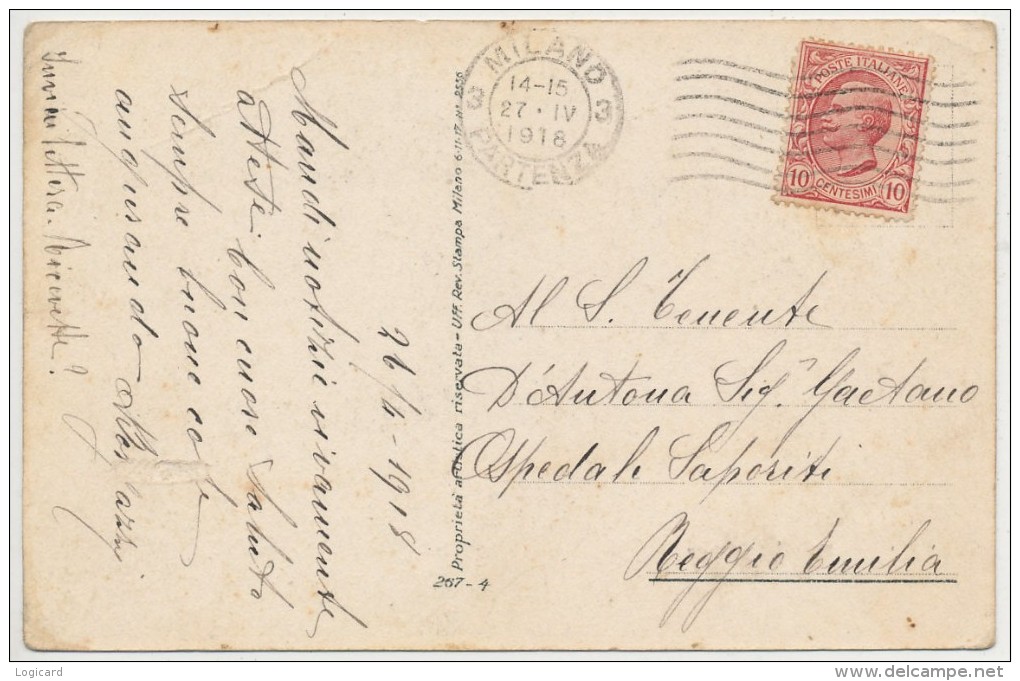 MILANO
PARTENZA
3 3
14-15
27·IV
1918
POSTE ITALIANE
10 CENTESIMI 10
26/4-1918
Mandi notizie vivamente
attese con cuore saluto
sempre buone cose
augurando
Inviai lettera. Ricevette?
Al S. Tenente
D'Antona Sig. Gaetano
Ospedale Saporiti
Reggio Emilia
Proprietà artistica riservata - Uff. Rev. Stampa Milano 6-11-17 N.
267-4
Logicard
www.delcampe.net